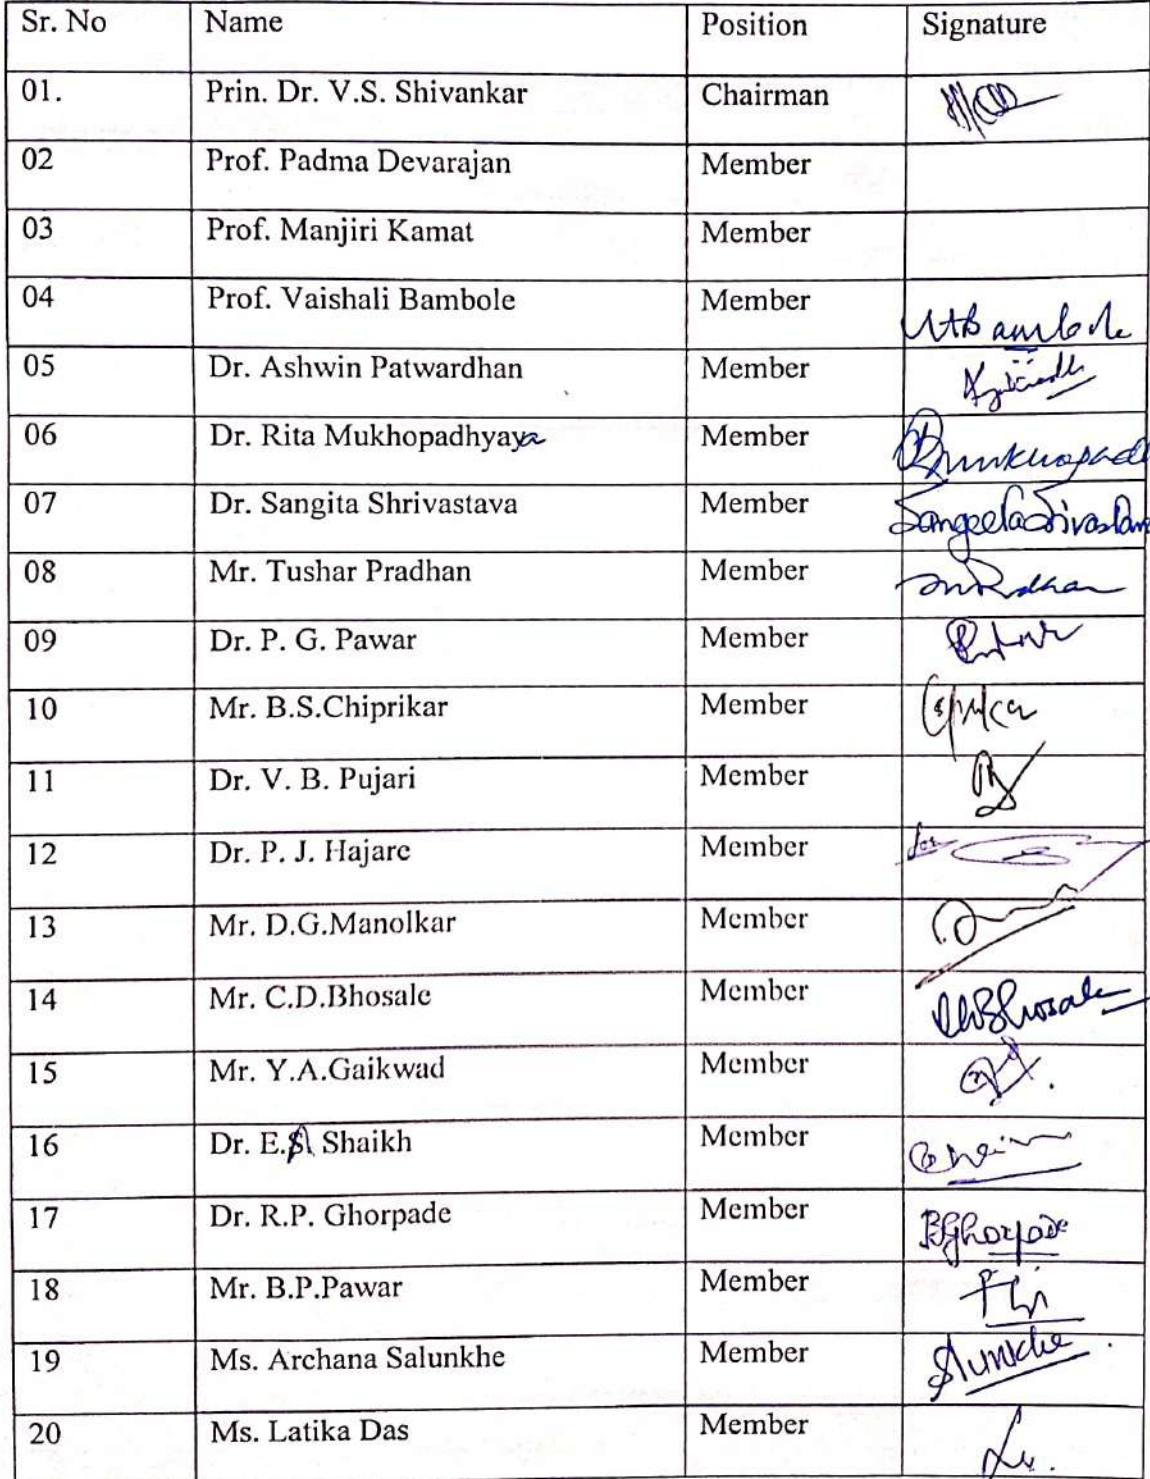 Sr. No Name Position Signature
01. Prin. Dr. V.S. Shivankar Chairman
02 Prof. Padma Devarajan Member
03 Prof. Manjiri Kamat Member
04 Prof. Vaishali Bambole Member
05 Dr. Ashwin Patwardhan Member
06 Dr. Rita Mukhopadhyaya Member
07 Dr. Sangita Shrivastava Member Sangeeta Srivastava
08 Mr. Tushar Pradhan Member
09 Dr. P. G. Pawar Member
10 Mr. B.S.Chiprikar Member
11 Dr. V. B. Pujari Member
12 Dr. P. J. Hajare Member
13 Mr. D.G.Manolkar Member
14 Mr. C.D.Bhosale Member
15 Mr. Y.A.Gaikwad Member
16 Dr. E. Shaikh Member
17 Dr. R.P. Ghorpade Member
18 Mr. B.P.Pawar Member
19 Ms. Archana Salunkhe Member
20 Ms. Latika Das Member